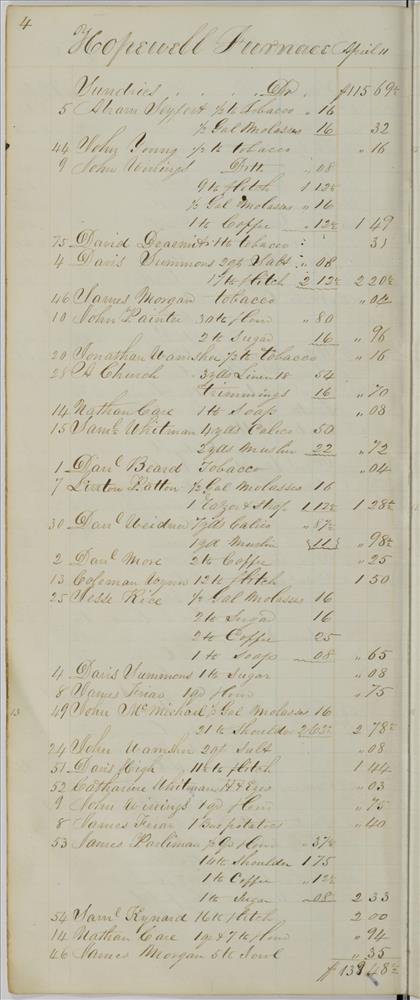 4
Hopewell Furnace April 11
Sundries Dr. $115 69½
5 Abram Seyfert ½ ℔ Tobacco " 16
½ Gal Molasses 16 32
44 John Young ½ ℔ tobacco " 16
9 John Winings " 08
9 ℔ flitch 1 12½
½ Gal Molasses " 16
1 ℔ Coffee " 12½ 1 49
75 David 1 ℔ tobacco 31
4 Davis Summons 20 ℔ Salt " 08
17 ℔ flitch 2 12½ 2 20½
46 James Morgan tobacco " 04
10 John Painter 30 ℔ flour " 80
2 ℔ Sugar 16 " 96
20 Jonathan Wamsher ½ ℔ tobacco " 16
28 Church 3 yds Linen 18 54
trimmings 16 " 70
14 Nathan Care 1 ℔ Soap " 08
15 Saml Whitman 4 yds Calico 50
2 yds Muslin 22 " 72
1 Danl Beard Tobacco " 04
7 Linton Patton ½ Gal Molasses 16
1 Razor & Strop 1 12½ 1 28½
30 Danl Weidner 7 yds Calico " 87½
1 yd Muslin 11 " 98½
2 Danl More 2 ℔ Coffee " 25
13 Coleman Wynn 12 ℔ flitch 1 50
25 Jesse Rice ½ Gal Molasses 16
2 ℔ Sugar 16
2 ℔ Coffee 25
1 ℔ Soap 08 " 65
4 Davis Summons 1 ℔ Sugar " 08
8 James 1 qr flour " 75
13
49 John McMichael ½ Gal Molasses 16
21 ℔ Shoulder 2 62½ 2 78½
24 John Wamsher 20 ℔ Salt " 08
51 Davis High 11½ ℔ flitch 1 44
52 Catharine Whitman " 03
9 John Winings 1 qr flour " 75
8 James 1 potatoes " 40
53 James Parliman ½ qr flour " 37½
14 ℔ Shoulder 1 75
1 ℔ Coffee " 12½
1 ℔ Sugar " 08 2 33
54 Saml Kynard 16 ℔ flitch 2 00
14 Nathan Care 1 qr & 7 ℔ flour " 94
46 James Morgan 5 ℔ " 35
$139 48½